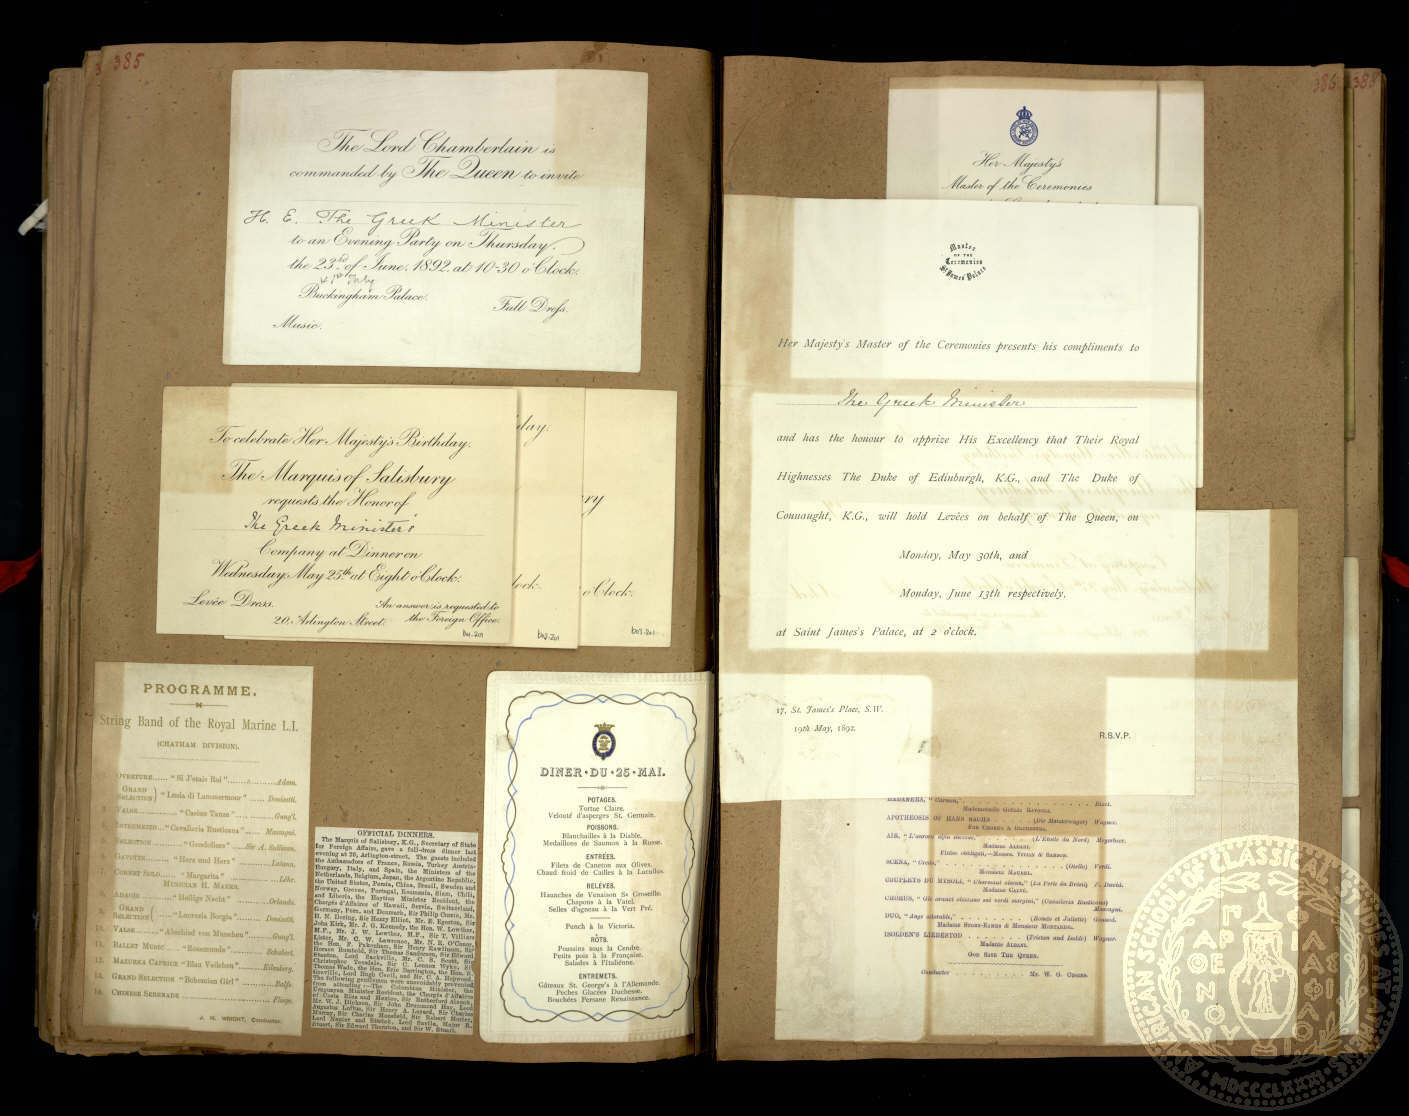 385
The Lord Chamberlain is
commanded by The Queen to invite
H. E. The Greek Minister
to an Evening Party on Thursday,
the 23rd of June, 1892, at 10-30 o'Clock.
& 1st July
Buckingham Palace.
Full Dress.
Music.
To celebrate Her Majesty's Birthday.
The Marquis of Salisbury
requests the Honor of
The Greek Minister's
Company at Dinner on
Wednesday, May 25th at Eight o'Clock.
Levée Dress.
An answer is requested to
20, Arlington Street.
the Foreign Office.
day.
lock.
ry
o'Clock.
PROGRAMME.
String Band of the Royal Marine L.I.
(CHATHAM DIVISION).
OVERTURE...... "Si J'etais Roi" ............ Adam.
GRAND SELECTION } "Lucia di Lammermoor" ...... Donizetti.
VALSE ............ "Casino Tanze" ............ Gung'l.
INTERMEZZO... "Cavalleria Rusticana" ...... Mascagni.
SELECTION ......... "Gondoliers" ...... Sir A. Sullivan.
GAVOTTE ......... "Herz und Herz" ......
CORNET SOLO...... "Margarita" ......
MUSICIAN H. MAERS.
ADAGIO ......... "Heilige Nacht" ......
GRAND SELECTION } "Lucrezia Borgia" ...... Donizetti.
VALSE ...... "Abschied von Munchen" ...... Gung'l.
BALLET MUSIC ...... "Rosamunde" ...... Schubert.
MAZURKA CAPRICE "Blau Veilchen" ...... Eilenberg.
GRAND SELECTION "Bohemian Girl" ...... Balfe.
CHINESE SERENADE ...... Fliege.
J. H. WRIGHT, Conductor.
OFFICIAL DINNERS.
The Marquis of Salisbury, K.G., Secretary of State
for Foreign Affairs, gave a full-dress dinner last
evening at 20, Arlington-street. The guests included
the Ambassadors of France, Russia, Turkey, Austria-
Hungary, Italy, and Spain, the Ministers of the
Netherlands, Belgium, Japan, the Argentine Republic,
the United States, Persia, China, Brazil, Sweden and
Norway, Greece, Portugal, Roumania, Siam, Chili,
and Liberia, the Haytian Minister Resident, the
Chargés d'Affaires of Hawaii, Servia, Switzerland,
Germany, Peru, and Denmark, Sir Philip Currie, Mr.
DINER·DU·25·MAI.
POTAGES.
Tortue Claire.
Velouté d'asperges St. Germain.
POISSONS.
Blanchailles à la Diable.
Medaillons de Saumon à la Russe.
ENTRÉES.
Filets de Caneton aux Olives.
Chaud froid de Cailles à la Lucullus.
RELEVES.
Haunches de Venaison Se Groseille.
Chapons à la Vatel.
Selles d'agneau à la Vert Pré.
Punch à la Victoria.
RÔTS.
Poussins sous la Cendre.
Petits pois à la Française.
Salades à l'Italiènne.
ENTREMETS.
Gâteaux St. George's à l'Allemande.
Peches Glacées Duchesse.
Bouchées Persane Renaissance.
386
388
Her Majesty's
Master of the Ceremonies
Master
OF THE
Ceremonies
St James' Palace
Her Majesty's Master of the Ceremonies presents his compliments to
The Greek Minister
and has the honour to apprize His Excellency that Their Royal
Highnesses The Duke of Edinburgh, K.G., and The Duke of
Connaught, K.G., will hold Levées on behalf of The Queen, on
Monday, May 30th, and
Monday, June 13th respectively,
at Saint James's Palace, at 2 o'clock.
17, St. James's Place, S.W.
19th May, 1892.
R.S.V.P.
HABANERA, "Carmen," . . . . Bizet.
APOTHEOSIS OF HANS SACHS . . . (Die Meistersinger) Wagner.
FOR CHORUS & ORCHESTRA.
(L'Etoile du Nord) Meyerbeer.
Madame ALBANI.
SCENA, "Credo," . . . . (Otello) Verdi.
Monsieur MAUREL.
COUPLETS DU MYSOLI, "Charmant oiseau," (La Perle du Brésil) F. David.
Madame CALVÉ.
CHORUS, "Gli aranci olezzano sui verdi margini," (Cavalleria Rusticana)
Mascagni.
DUO, "Ange adorable," . . . (Roméo et Juliette) Gounod.
ISOLDEN'S LIEBESTOD . . . (Tristan und Isolde) Wagner.
Madame ALBANI.
GOD SAVE THE QUEEN.
Conductor . . . . Mr. W. G. CUSINS.
AMERICAN SCHOOL OF CLASSICAL STUDIES AT ATHENS
MDCCCLXXXI
ΠΑΡΘΕΝΟΥ